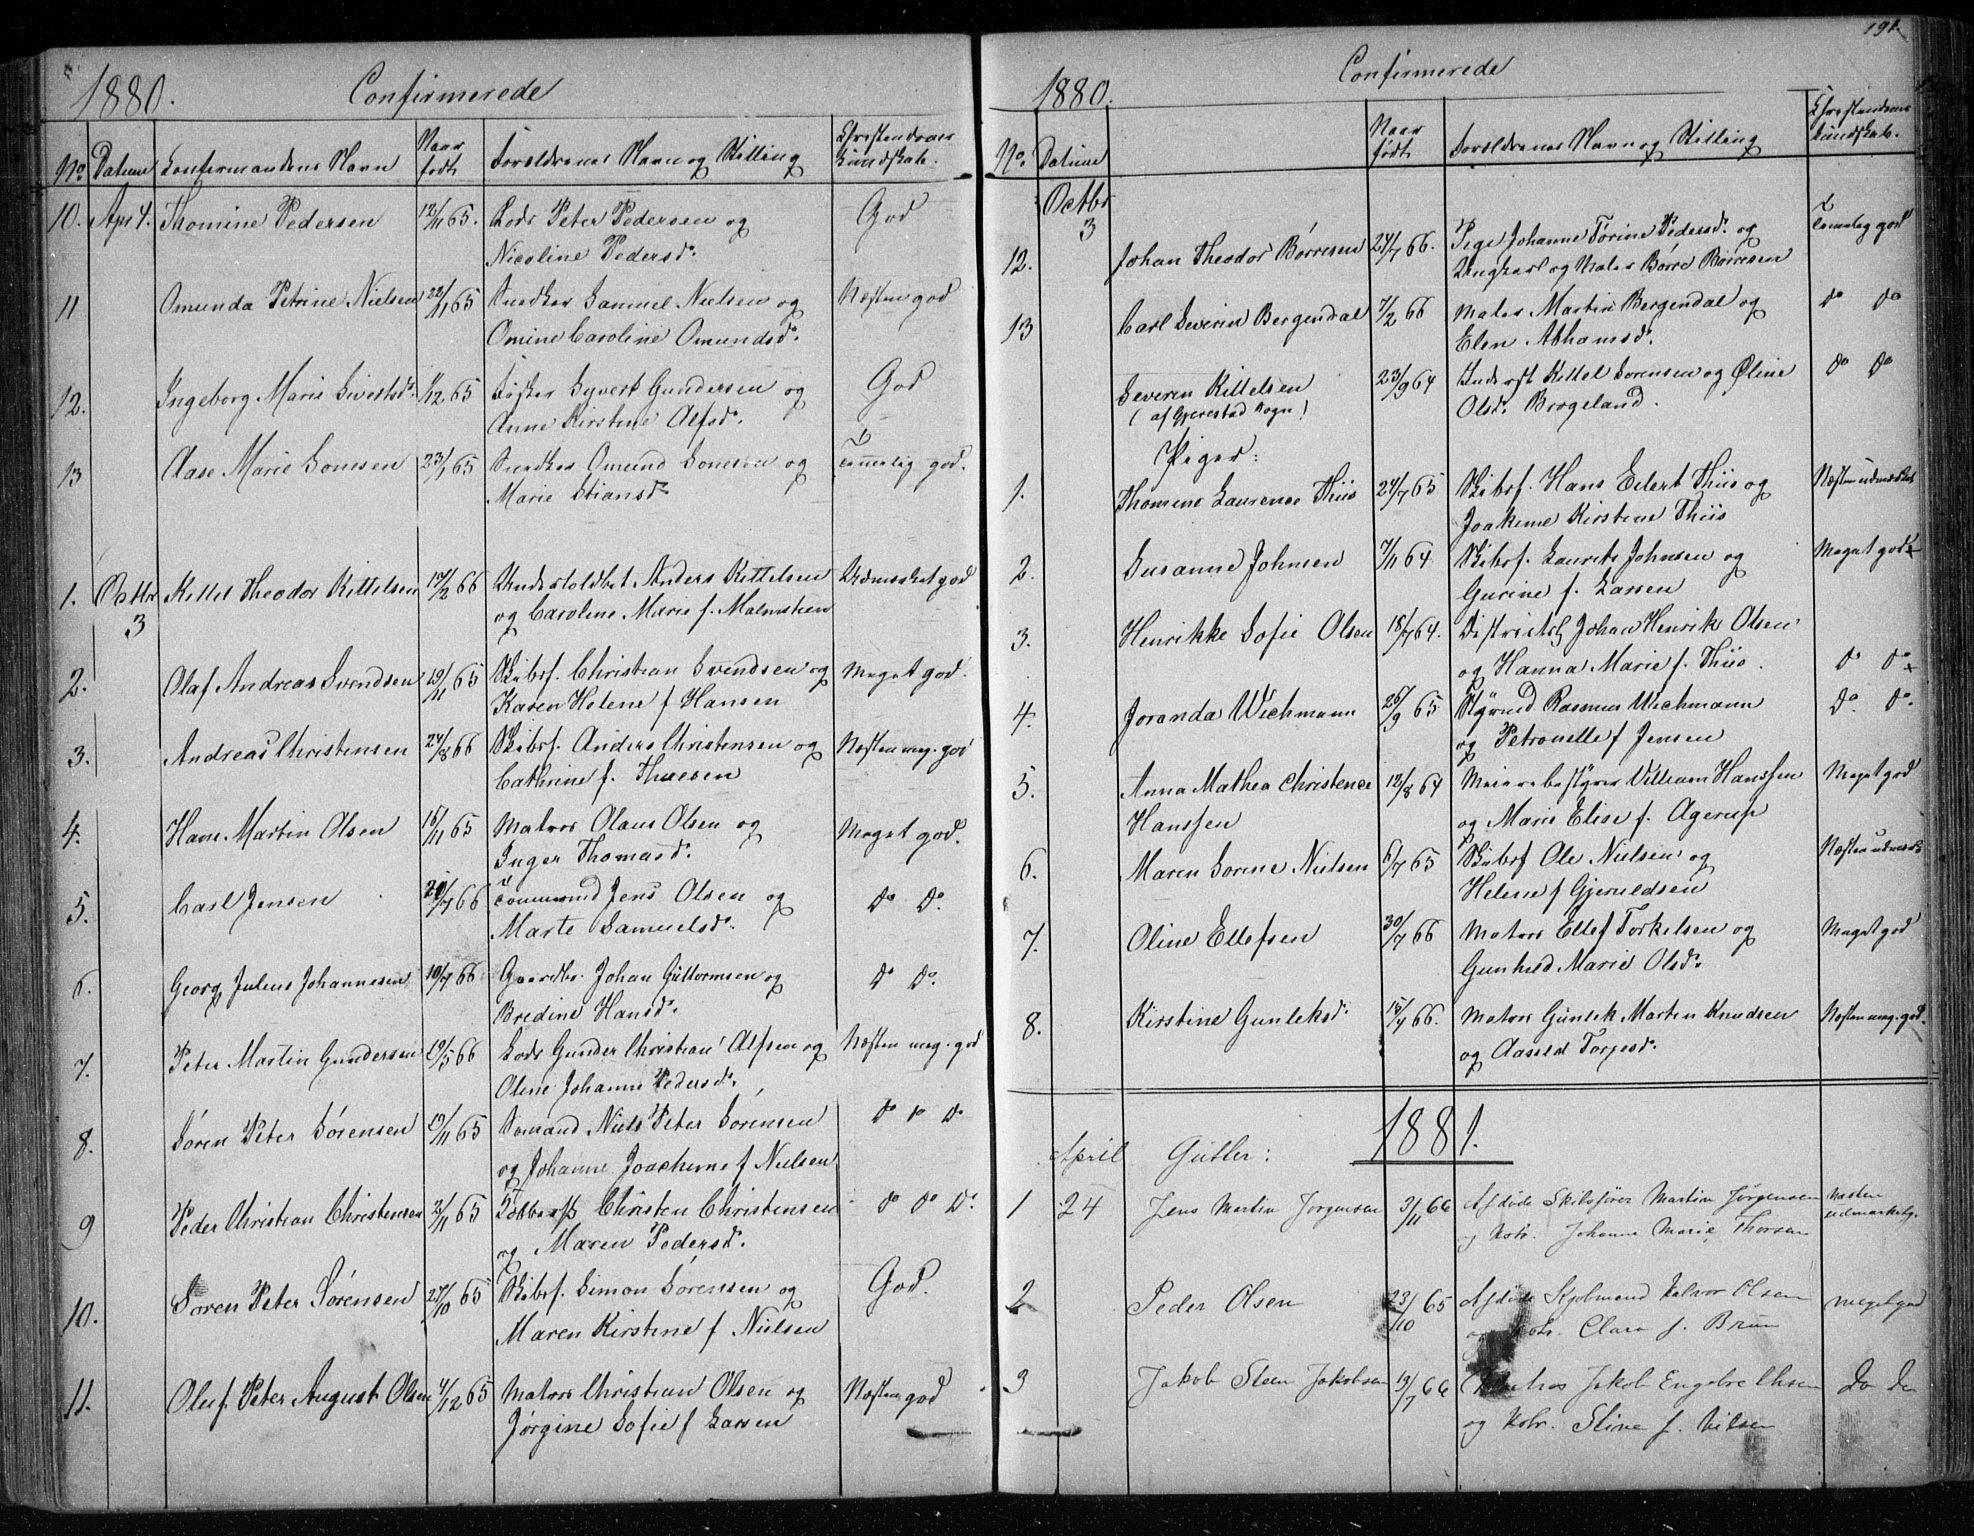 1880. Confirmerede
No. Datum Confirmandens Navn Naar født Foreldrenes Navn og Stilling Christendoms Kundskab.
10. Apr 4. Thomine Pedersen 12/11 65. Lods Peter Pedersen og God
Nicoline Pedersd.
11 Omunda Petrine Nielsen 22/1 65 Snedker Samuel Nielsen og Næsten god
Omine Caroline Omundsd.
12. Ingeborg Marie Sivertsd. 1/12 65 Fisker Syvert Gundersen og God
Anne Kirstine Alfsd.
13 Aase Marie Sonesen 23/1 65 Snedker Omund Sonesen og Temmelig god.
Marie Stiansd.
1. Octbr Kittel Theodor Kittelsen 17/2 66 Undertoldbet Anders Kittelsen Udmerket god
3 og Caroline Marie f. Malmstien
2. Olaf Andreas Svendsen 19/11 65 Skibsf. Christian Svendsen og Meget god.
Karen Helene f Hansen
3. Andreas Christensen 24/8 66 Skibsf. Anders Christensen og Næsten meg. god
Cathrine f. Thuesen
4. Hans Martin Olsen 15/11 65 Matros Olaus Olsen og Meget god.
Inger Thomasd.
5. Carl Jensen 20/7 66 Tømmermd Jens Olsen og Do Do.
Marte Samuelsd.
6. Georg Julius Johannesen 10/7 66 Gaardbr. Johan Guttormsen og Do Do.
Bredine Hansd.
7. Peter Martin Gundersen 19/5 66 Lods Gunder Christian Alfsen og Næsten meg. god
Oline Johanne Pedersd.
8. Søren Peter Sørensen 19/11 65 Sømand Niels Peter Sørensen Do Do Do
og Johanne Joachime f Nielsen
9 Peder Christian Christensen 2/11 65 Christen Christensen Do Do Do.
og Maren Pedersd.
10. Søren Peter Sørensen 27/10 65 Skibsf. Simon Sørensen og God.
Maren Kirstine f Nielsen
11. Oluf Peter August Olsen 4/12 65 Matros Christian Olsen og Næsten god
Jørgine Sofie f Larsen
191.
1880. Confirmerede
No. Datum Naar født Foreldrenes Navn og Stilling Christendoms Kundskab.
Octbr
3
12. Johan Theodor Børresen 24/7 66. Pige Johanne Torine Pedersd. og Temmelig god
Ungkarl og Matros Børre Børresen
13 Carl Severin Bergendal 7/2 66 Matros Martin Bergendal og Do Do
Elen Abhamsd.
Severin Kittelsen 23/9 64 Inderst Kittel Sørensen og Oline Do Do
(af Gjerestad Sogn) Olsd. Brøgeland.
Piger:
1. Thomine Laurence Thiis 24/7 65 Skibsf. Hans Eilert Thiis og Næsten udmerket
Joakime Kirstine Thiis
2. Susanne Johnsen 7/11 64 Skibsf. Laurits Johnsen og Meget god
Gurine f. Larsen
3. Henrikke Sofie Olsen 18/7 64. Johan Henrik Olsen
og Hanna Marie f. Thiis. Do Do
4. Joranda Wichmann 26/9 65 Styrmd Rasmus Wichmann Do. Do.
og Petronelle f Jensen
5. Anna Mathea Christence 12/8 64 Meieriebestyrer Villiam Hanssen Meget god
Hanssen og Marie Elise f. Agerup
6. Maren Sorine Nielsen 6/7 65 Skibsf Ole Nielsen og Næsten udmerket
Helene f Gjeruldsen
7. Oline Ellefsen 30/7 66 Matros Ellef Torkelsen og Meget god
Gunhild Marie Olsd.
8. Kirstine Gunleksd. 15/7 66. Matros Gunlek Marten Knudsen Næsten meg. god.
og Aasild Torjusd.
1881.
April Gutter:
1 24 Jens Martin Jørgensen 3/11 66 Afdøde Skibsfører Martin Jørgensen Næsten
og Kone Johanne Marie Thorsen udmerket g.
2 Peder Olsen 23/10 65 Afdøde Olsen meget god
og Clara f. Brun
3 Jakob Steen Jakobsen 19/7 66 Matros Jakob Engebrethsen Do Do
og Kone Stine f. Nilsen